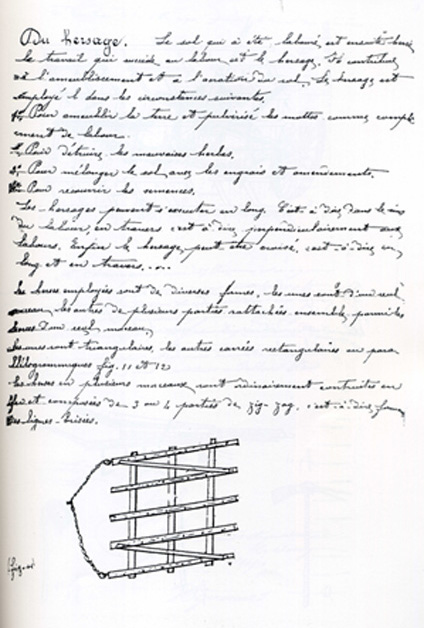 Du hersage. Le sol qui a été labouré, est ensuite hersé
le travail qui succède au labour est le hersage. Il contribue
à l'ameublissement et a l'aération du sol. Le hersage est
employé dans les circonstances suivantes.
1º Pour ameublir la terre et pulvérisé les mottes comme complé-
ment de labour.
2º Pour détruire les mauvaises herbes.
3º Pour mélanger le sol avec les engrais et amendements.
4º Pour recouvrir les semences.
Les hersages peuvent s'exécuter en long. C'est-à-dire dans le sens
du labour en travers c'est-à-dire perpendiculairement aux
labours. Enfin le hersage peut être croisé, c'est-à-dire en
long et en travers.....
Les herses employées sont de diverses formes, les unes sont d'un seul
morceau, les autres de plusieurs parties rattachées ensemble, parmi les
herses d'un seul morceau,
les unes sont triangulaires, les autres carrées rectangulaires ou para-
llélogrammiques fig. 11 et 12
les herses en plusieurs morceaux sont ordinairement contruites en
fer et composées de 3 ou 4 parties de zig-zag, c'est-à-dire
des lignes brisées.